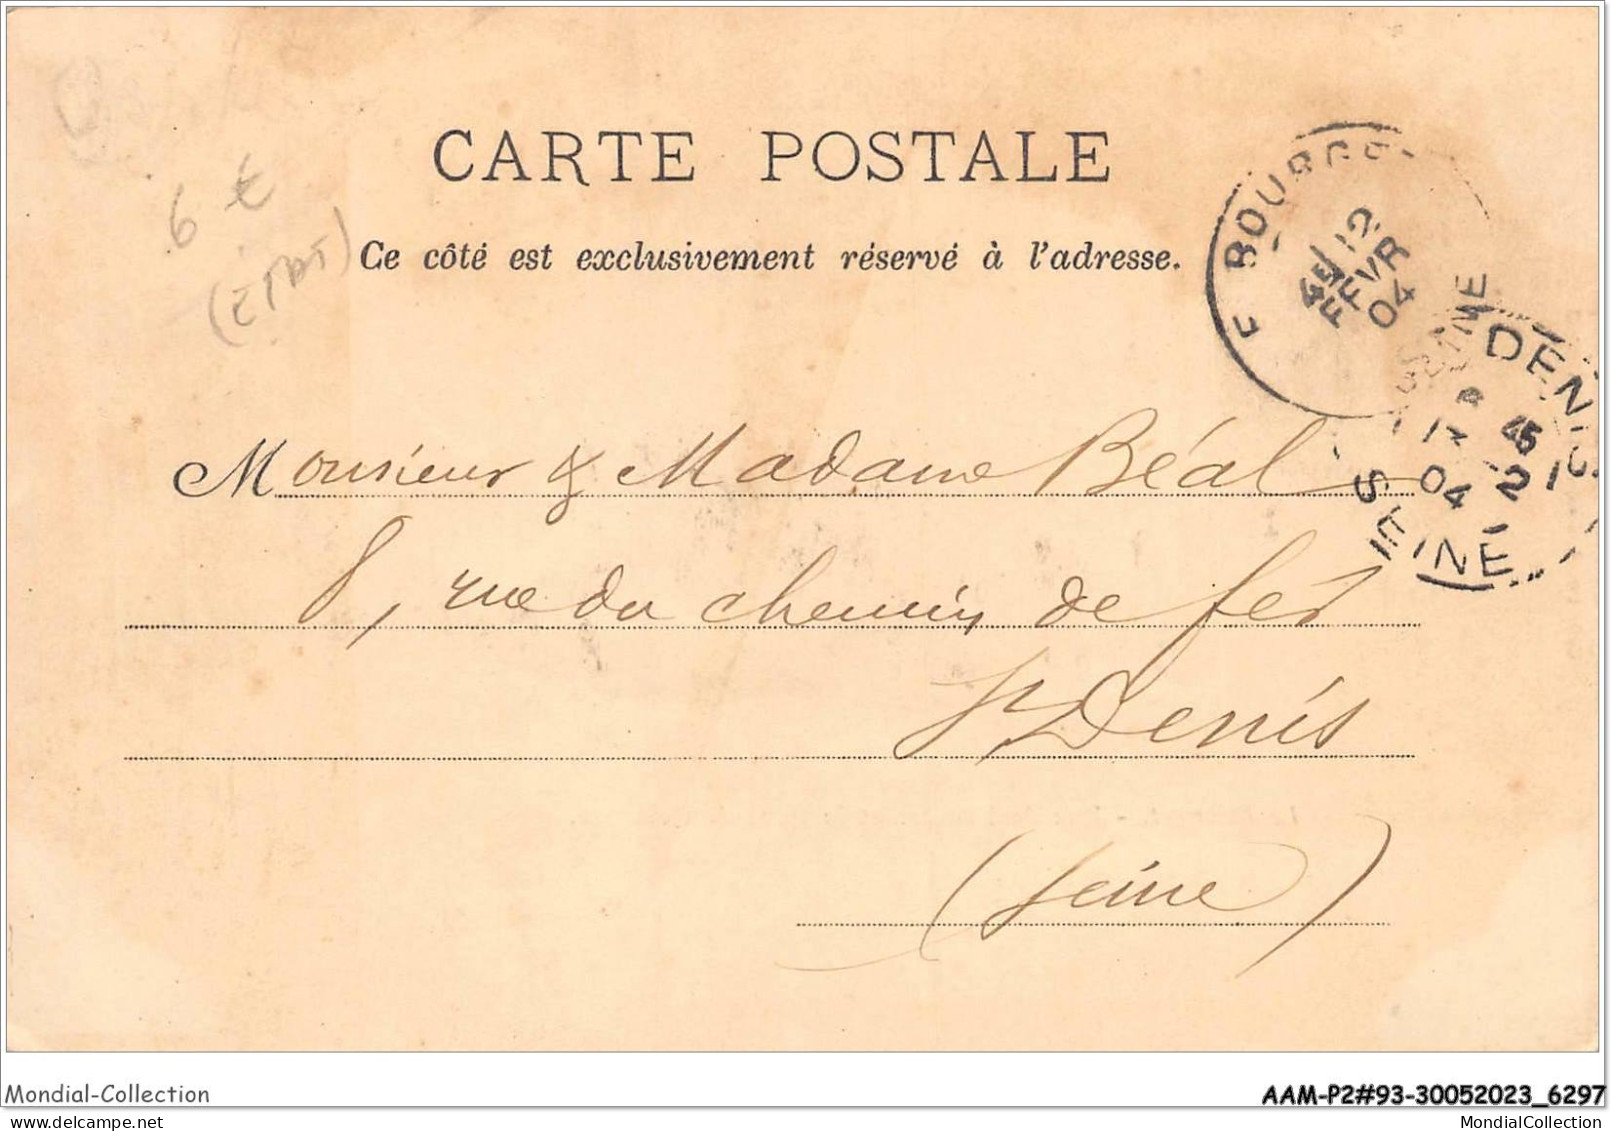 CARTE POSTALE
6 €
(ETAT)
Ce côté est exclusivement réservé à l'adresse.
E BOURGET
4E / 12
FEVR
04
SEINE
DENIS
45
04 2
SEINE
Monsieur & Madame Béal
8, rue du chemin de fer
St Denis
(Seine)
Mondial-Collection
AAM-P2#93-30052023_6297
MondialCollection.com